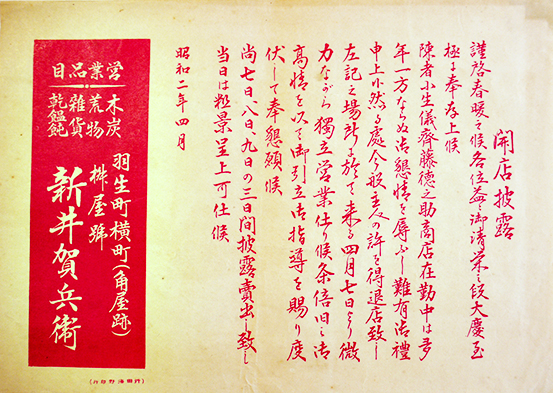 開店披露
謹啓春暖之候各位益々御清栄之段大慶至
極に奉存上候
陳者小生儀齋藤德之助商店在勤中は多
年一方ならぬ御懇情を辱ふし難有御禮
申上候然る處今般主人の許を得退店致し
左記之場所に於て来る四月七日より微
力ながら獨立營業仕り候条倍旧之御
高情を以て御引立御指導を賜り度
伏して奉懇願候
尚七日、八日、九日の三日間披露賣出し致し
当日は粗景呈上可仕候
昭和二年四月
営業品目
木炭
荒物
雑貨
乾饂飩
羽生町横町(角屋跡)
桝屋號
新井賀兵衛